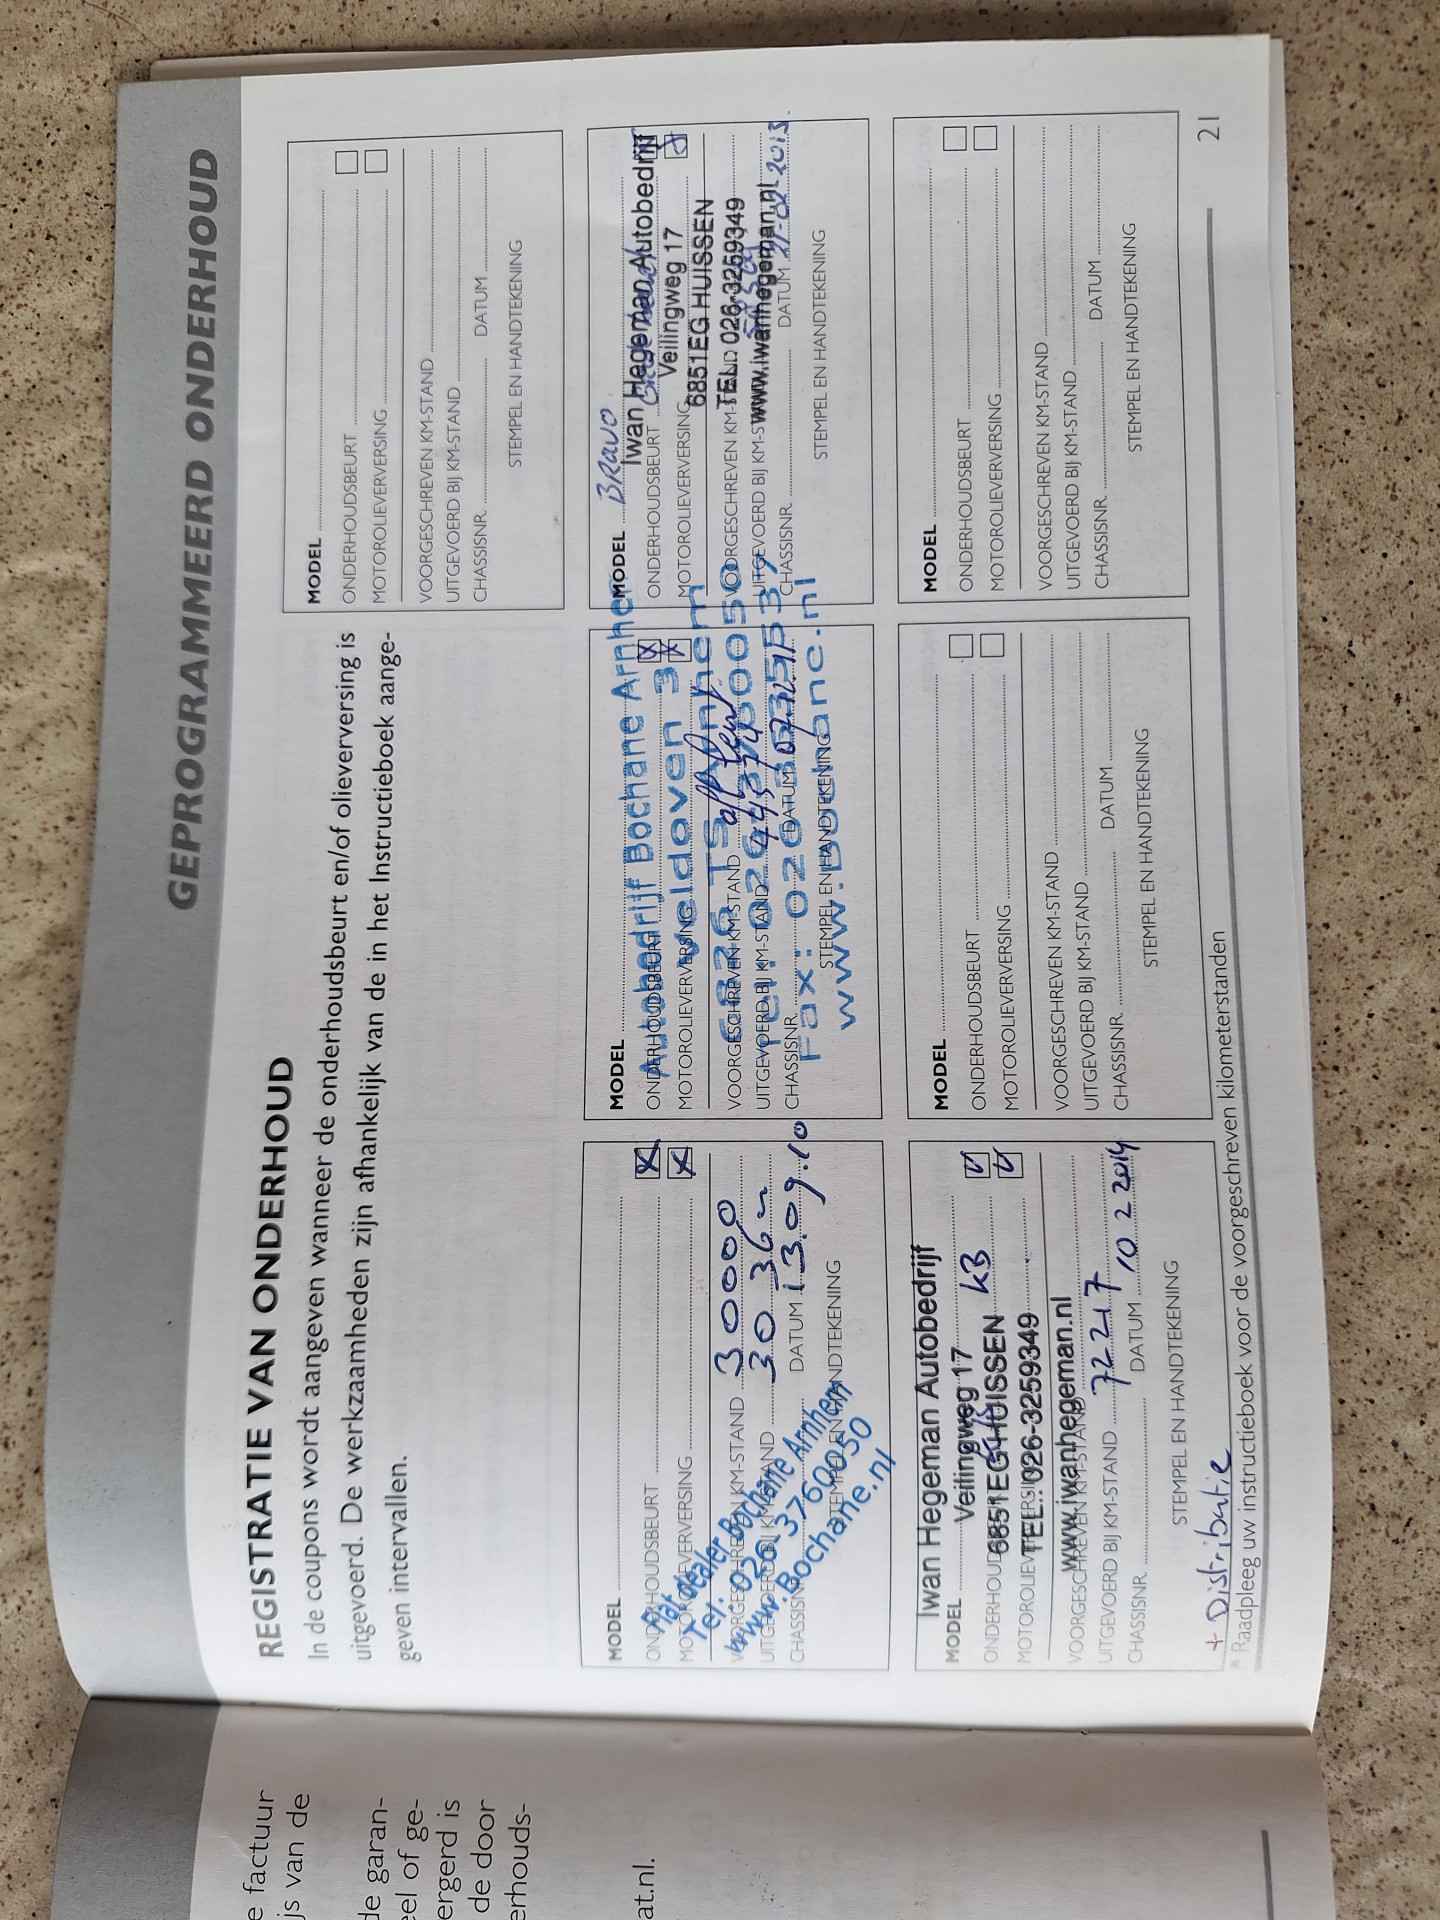 GEPROGRAMMEERD ONDERHOUD
REGISTRATIE VAN ONDERHOUD
In de coupons wordt aangeven wanneer de onderhoudsbeurt en/of olieverversing is
uitgevoerd. De werkzaamheden zijn afhankelijk van de in het Instructieboek aange-
geven intervallen.
MODEL
ONDERHOUDSBEURT
MOTOROLIEVERVERSING
VOORGESCHREVEN KM-STAND
UITGEVOERD BIJ KM-STAND
CHASSISNR. DATUM
STEMPEL EN HANDTEKENING
MODEL
ONDERHOUDSBEURT
MOTOROLIEVERVERSING
VOORGESCHREVEN KM-STAND 30000
UITGEVOERD BIJ KM-STAND 30 36
CHASSISNR. DATUM 13.09.10
STEMPEL EN HANDTEKENING
Fiat dealer Bochane Arnhem
Tel. 026 3760050
www.Bochane.nl
MODEL
ONDERHOUDSBEURT
MOTOROLIEVERVERSING
VOORGESCHREVEN KM-STAND
UITGEVOERD BIJ KM-STAND
CHASSISNR. DATUM
STEMPEL EN HANDTEKENING
Autobedrijf Bochane Arnhem
Veldoven 3
6826 TS Arnhem
Tel: 026
Fax: 026
www.Bochane.nl
MODEL BRAVO
ONDERHOUDSBEURT
MOTOROLIEVERVERSING
VOORGESCHREVEN KM-STAND
UITGEVOERD BIJ KM-STAND
CHASSISNR. DATUM 2013
STEMPEL EN HANDTEKENING
Iwan Hegeman Autobedrijf
Veilingweg 17
6851EG HUISSEN
TEL.: 026-3259349
www.iwanhegeman.nl
MODEL
ONDERHOUDSBEURT KB
MOTOROLIEVERVERSING
VOORGESCHREVEN KM-STAND
UITGEVOERD BIJ KM-STAND 72217
CHASSISNR. DATUM 10 2 2014
STEMPEL EN HANDTEKENING
Iwan Hegeman Autobedrijf
Veilingweg 17
6851EG HUISSEN
TEL.: 026-3259349
www.iwanhegeman.nl
+ Distributie
MODEL
ONDERHOUDSBEURT
MOTOROLIEVERVERSING
VOORGESCHREVEN KM-STAND
UITGEVOERD BIJ KM-STAND
CHASSISNR. DATUM
STEMPEL EN HANDTEKENING
MODEL
ONDERHOUDSBEURT
MOTOROLIEVERVERSING
VOORGESCHREVEN KM-STAND
UITGEVOERD BIJ KM-STAND
CHASSISNR. DATUM
STEMPEL EN HANDTEKENING
* Raadpleeg uw instructieboek voor de voorgeschreven kilometerstanden
21
factuur
van de
de garan-
of ge-
is
de door
at.nl.